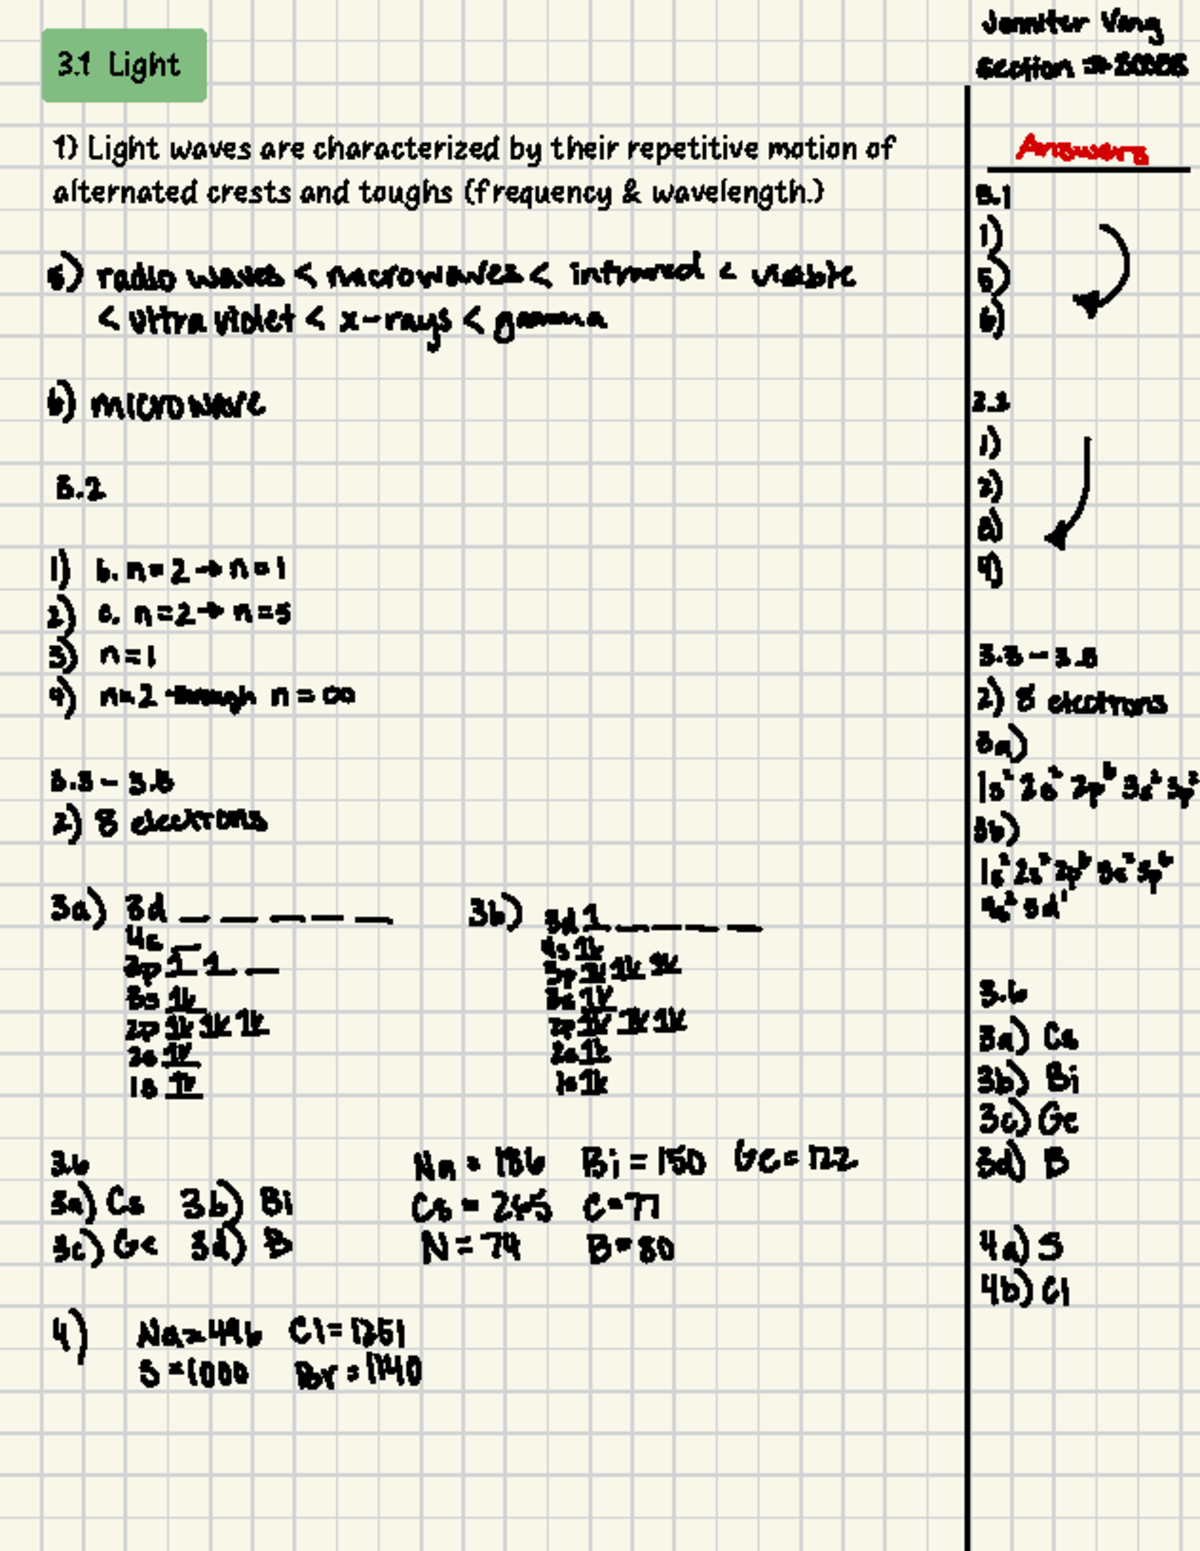 3.1 Light
1) Light waves are characterized by their repetitive motion of
alternated crests and toughs (frequency & wavelength.)
5) radio waves < microwaves < infrared < visible
< ultra violet < x-rays < gamma
6) microwave
3.2
1) b. n = 2 → n = 1
2) c. n = 2 → n = 5
3) n = 1
4) n = 2 through n = ∞
3.3 - 3.5
2) 8 electrons
3a) 3d _ _ _ _ _
4s _
3p 1 1 _
3s 1k
2p 1k 1k 1k
2s 1k
1s 1k
3b) 3d 1 _ _ _ _
4s 1k
3p 1k 1k 1k
3s 1k
2p 1k 1k 1k
2s 1k
1s 1k
3.6
3a) Cs 3b) Bi
3c) Ge 3d) B
Na = 186 Bi = 150 Ge = 122
Cs = 265 C = 77
N = 74 B = 80
4) Na = 496 Cl = 1251
S = 1000 Br = 1140
Jennifer Vang
Section →
Answers
3.1
1)
5)
6)
3.2
1)
2)
3)
4)
3.3 - 3.5
2) 8 electrons
3a)
1s² 2s² 2p⁶ 3s² 3p²
3b)
1s² 2s² 2p⁶ 3s² 3p⁶
4s² 3d¹
3.6
3a) Cs
3b) Bi
3c) Ge
3d) B
4a) S
4b) Cl